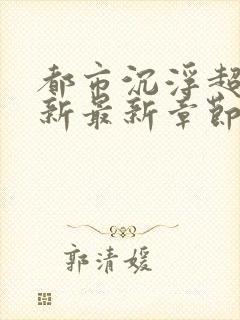 都市沉浮超
新最新章節
郭清媛